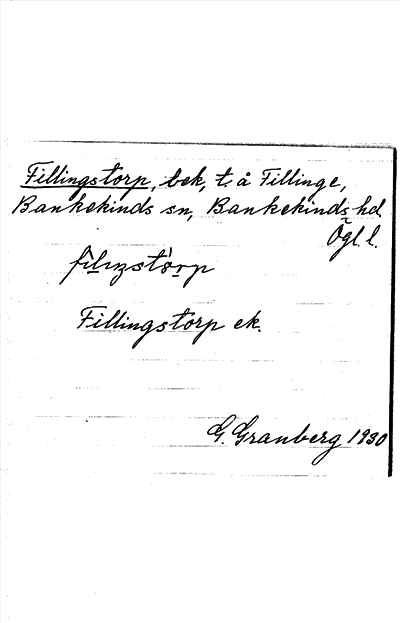 Fillingstorp, bek, t. å Fillinge,
Bankekinds sn, Bankekinds hd.
Ögl. l.
fìlıŋstòrp
Fillingstorp ek.
G. Granberg 1930